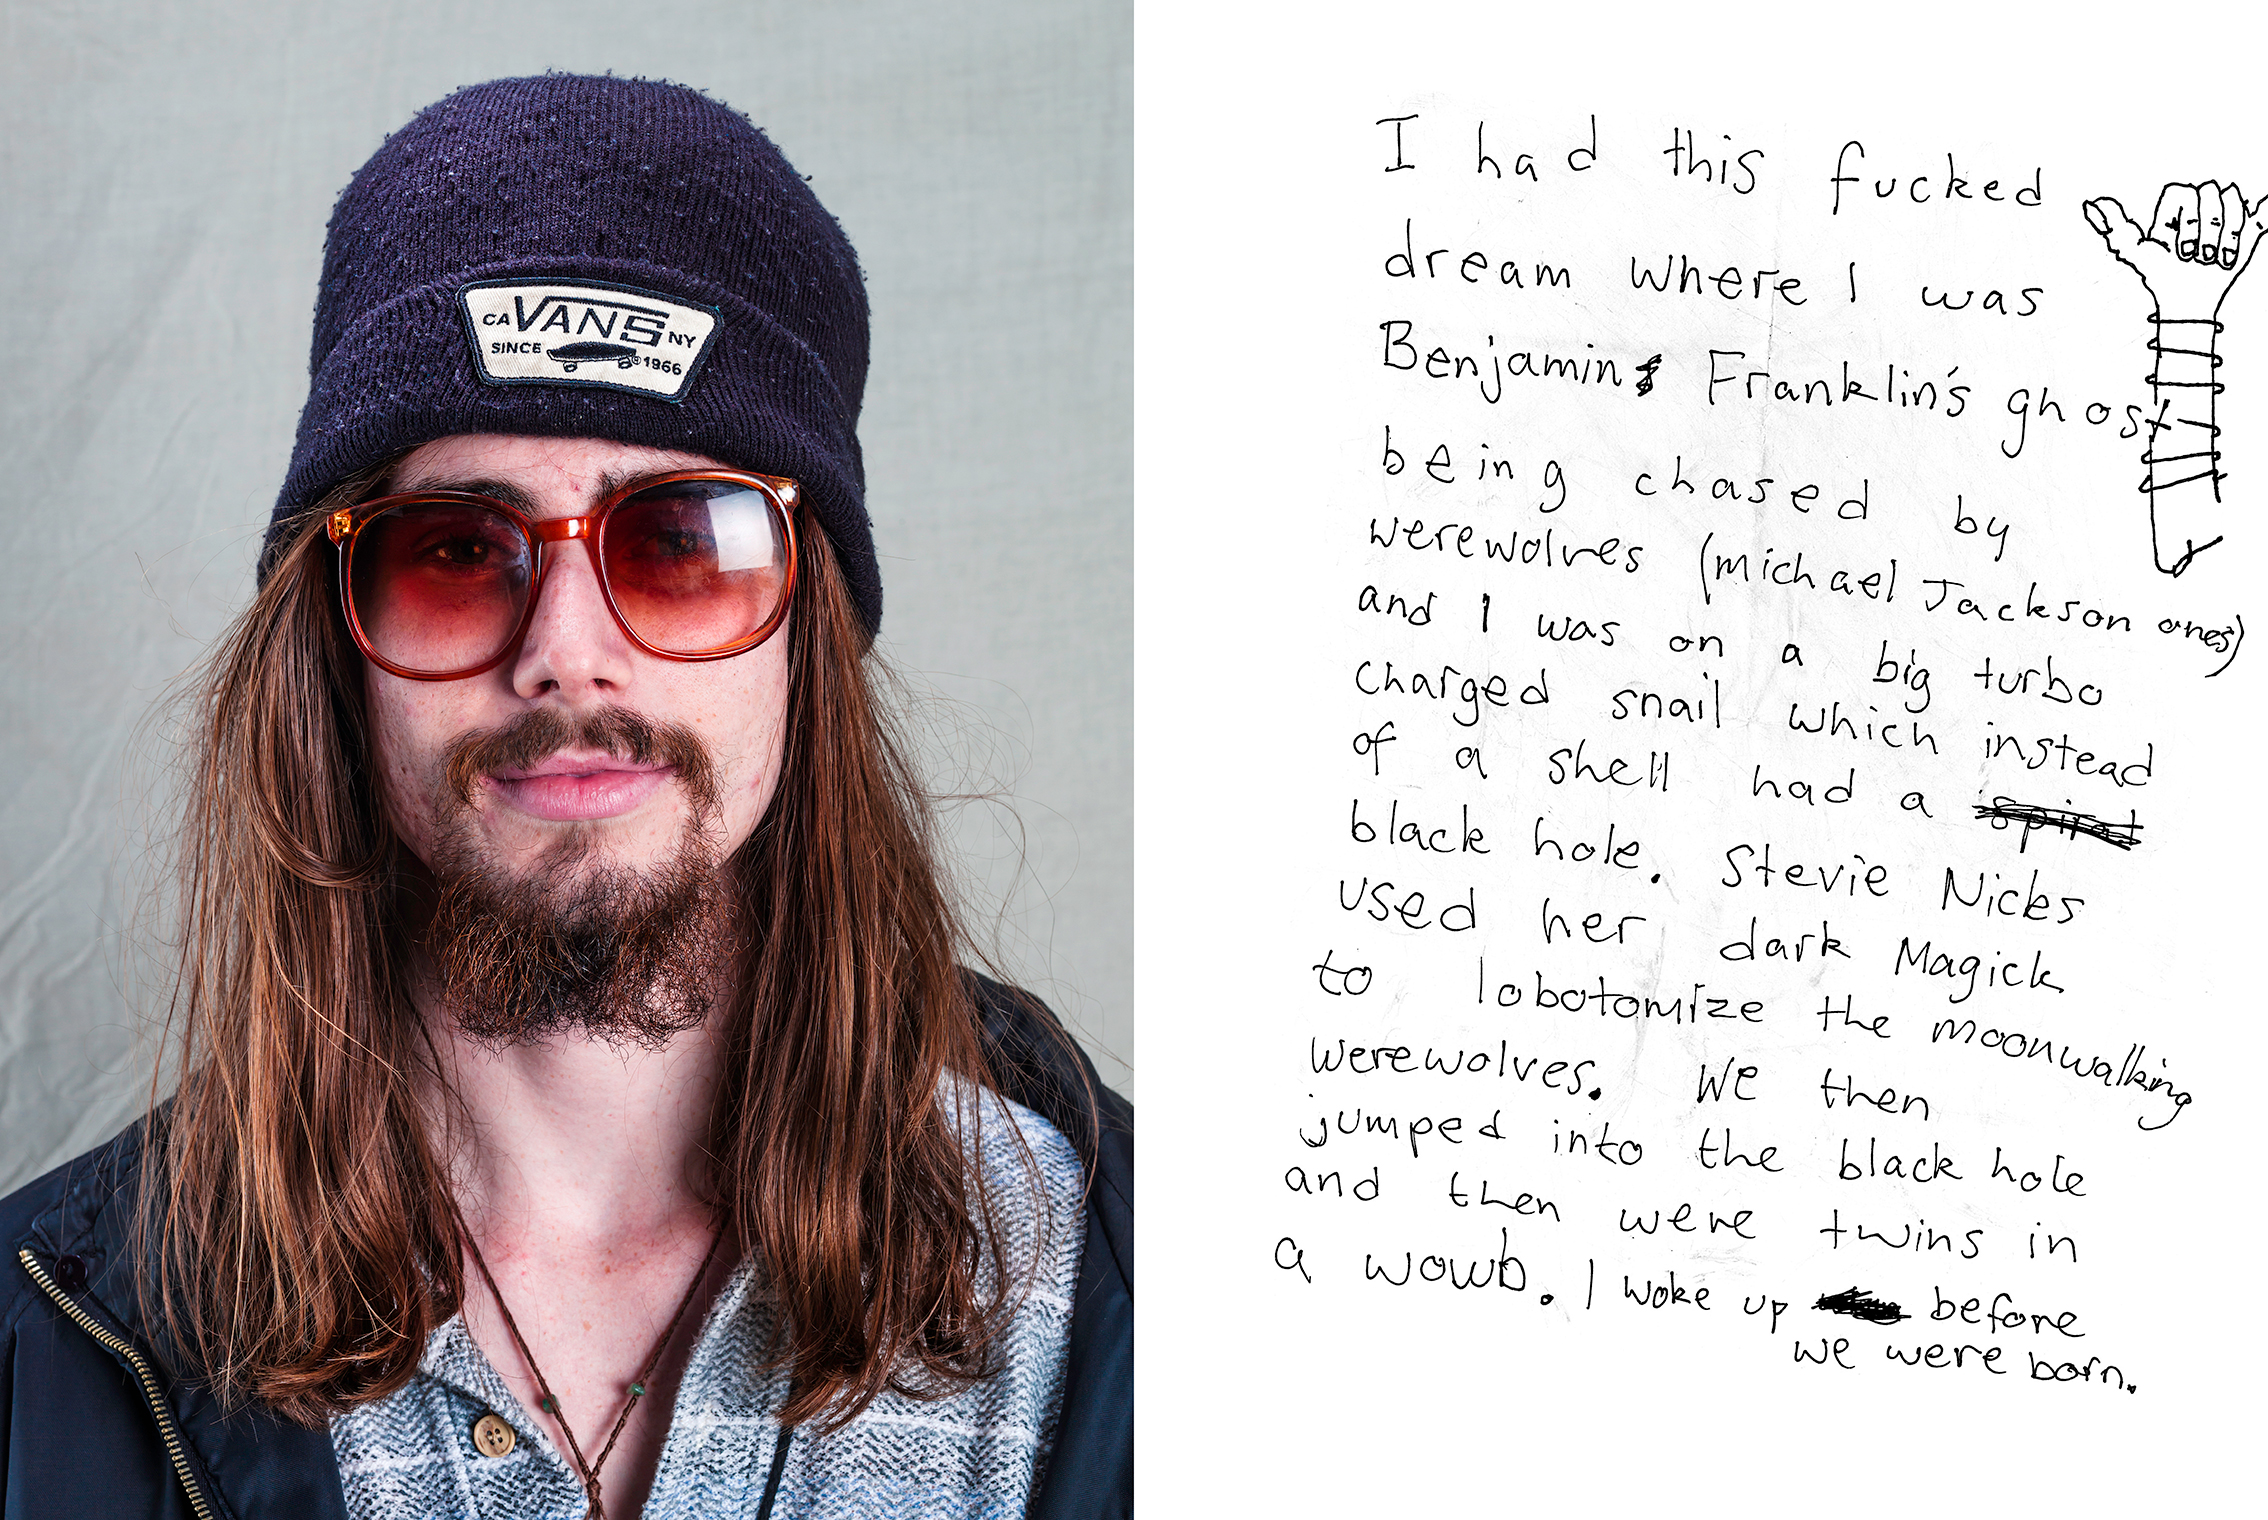 CA VANS NY
SINCE ©1966
I had this fucked
dream where I was
Benjamin Franklin's ghost
being chased by
werewolves (michael Jackson ones)
and I was on a big turbo
charged snail which instead
of a shell had a spiral
black hole. Stevie Nicks
used her dark Magick
to lobotomize the moonwalking
werewolves. We then
jumped into the black hole
and then were twins in
a womb. I woke up before
we were born.